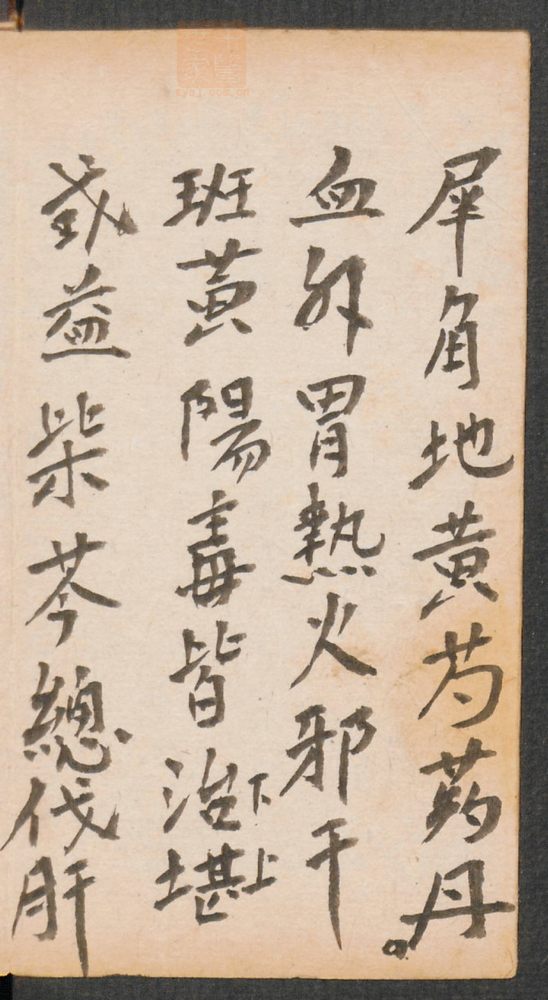 犀角地黄芍药丹。
血升胃熱火邪干
班黄陽毒皆治下堪上
或益柴芩總伐肝